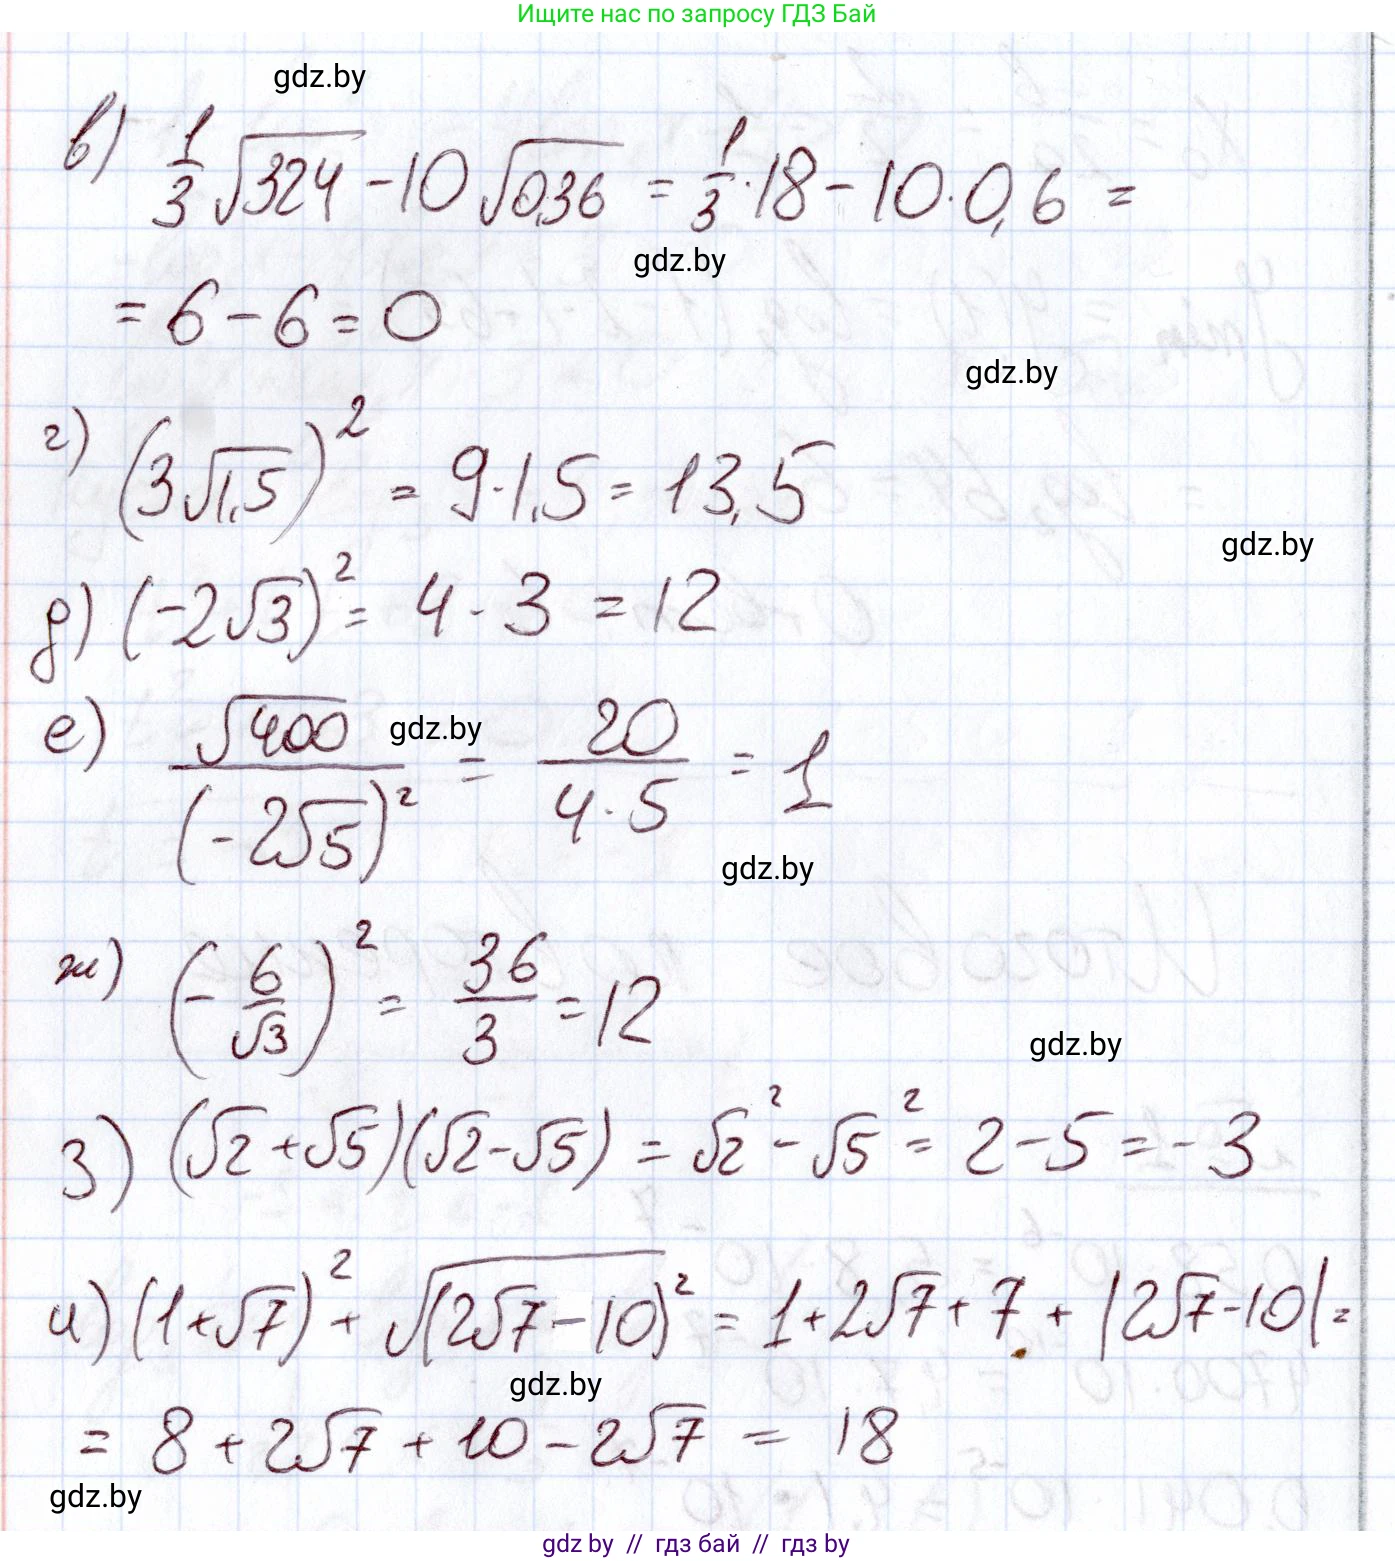 Ищите нас по запросу ГДЗ Бай
gdz.by
в) 1/3 √324 - 10 √0,36 = 1/3 · 18 - 10 · 0,6 =
gdz.by
= 6 - 6 = 0
gdz.by
г) (3√1,5)² = 9 · 1,5 = 13,5
gdz.by
д) (-2√3)² = 4 · 3 = 12
е) √400 / (-2√5)² = 20 / (4 · 5) = 1
gdz.by
gdz.by
ж) (- 6/√3)² = 36/3 = 12
gdz.by
з) (√2 + √5)(√2 - √5) = √2² - √5² = 2 - 5 = -3
и) (1 + √7)² + √(2√7 - 10)² = 1 + 2√7 + 7 + |2√7 - 10| =
gdz.by
= 8 + 2√7 + 10 - 2√7 = 18
gdz.by
gdz by // гдз бай // гдз by